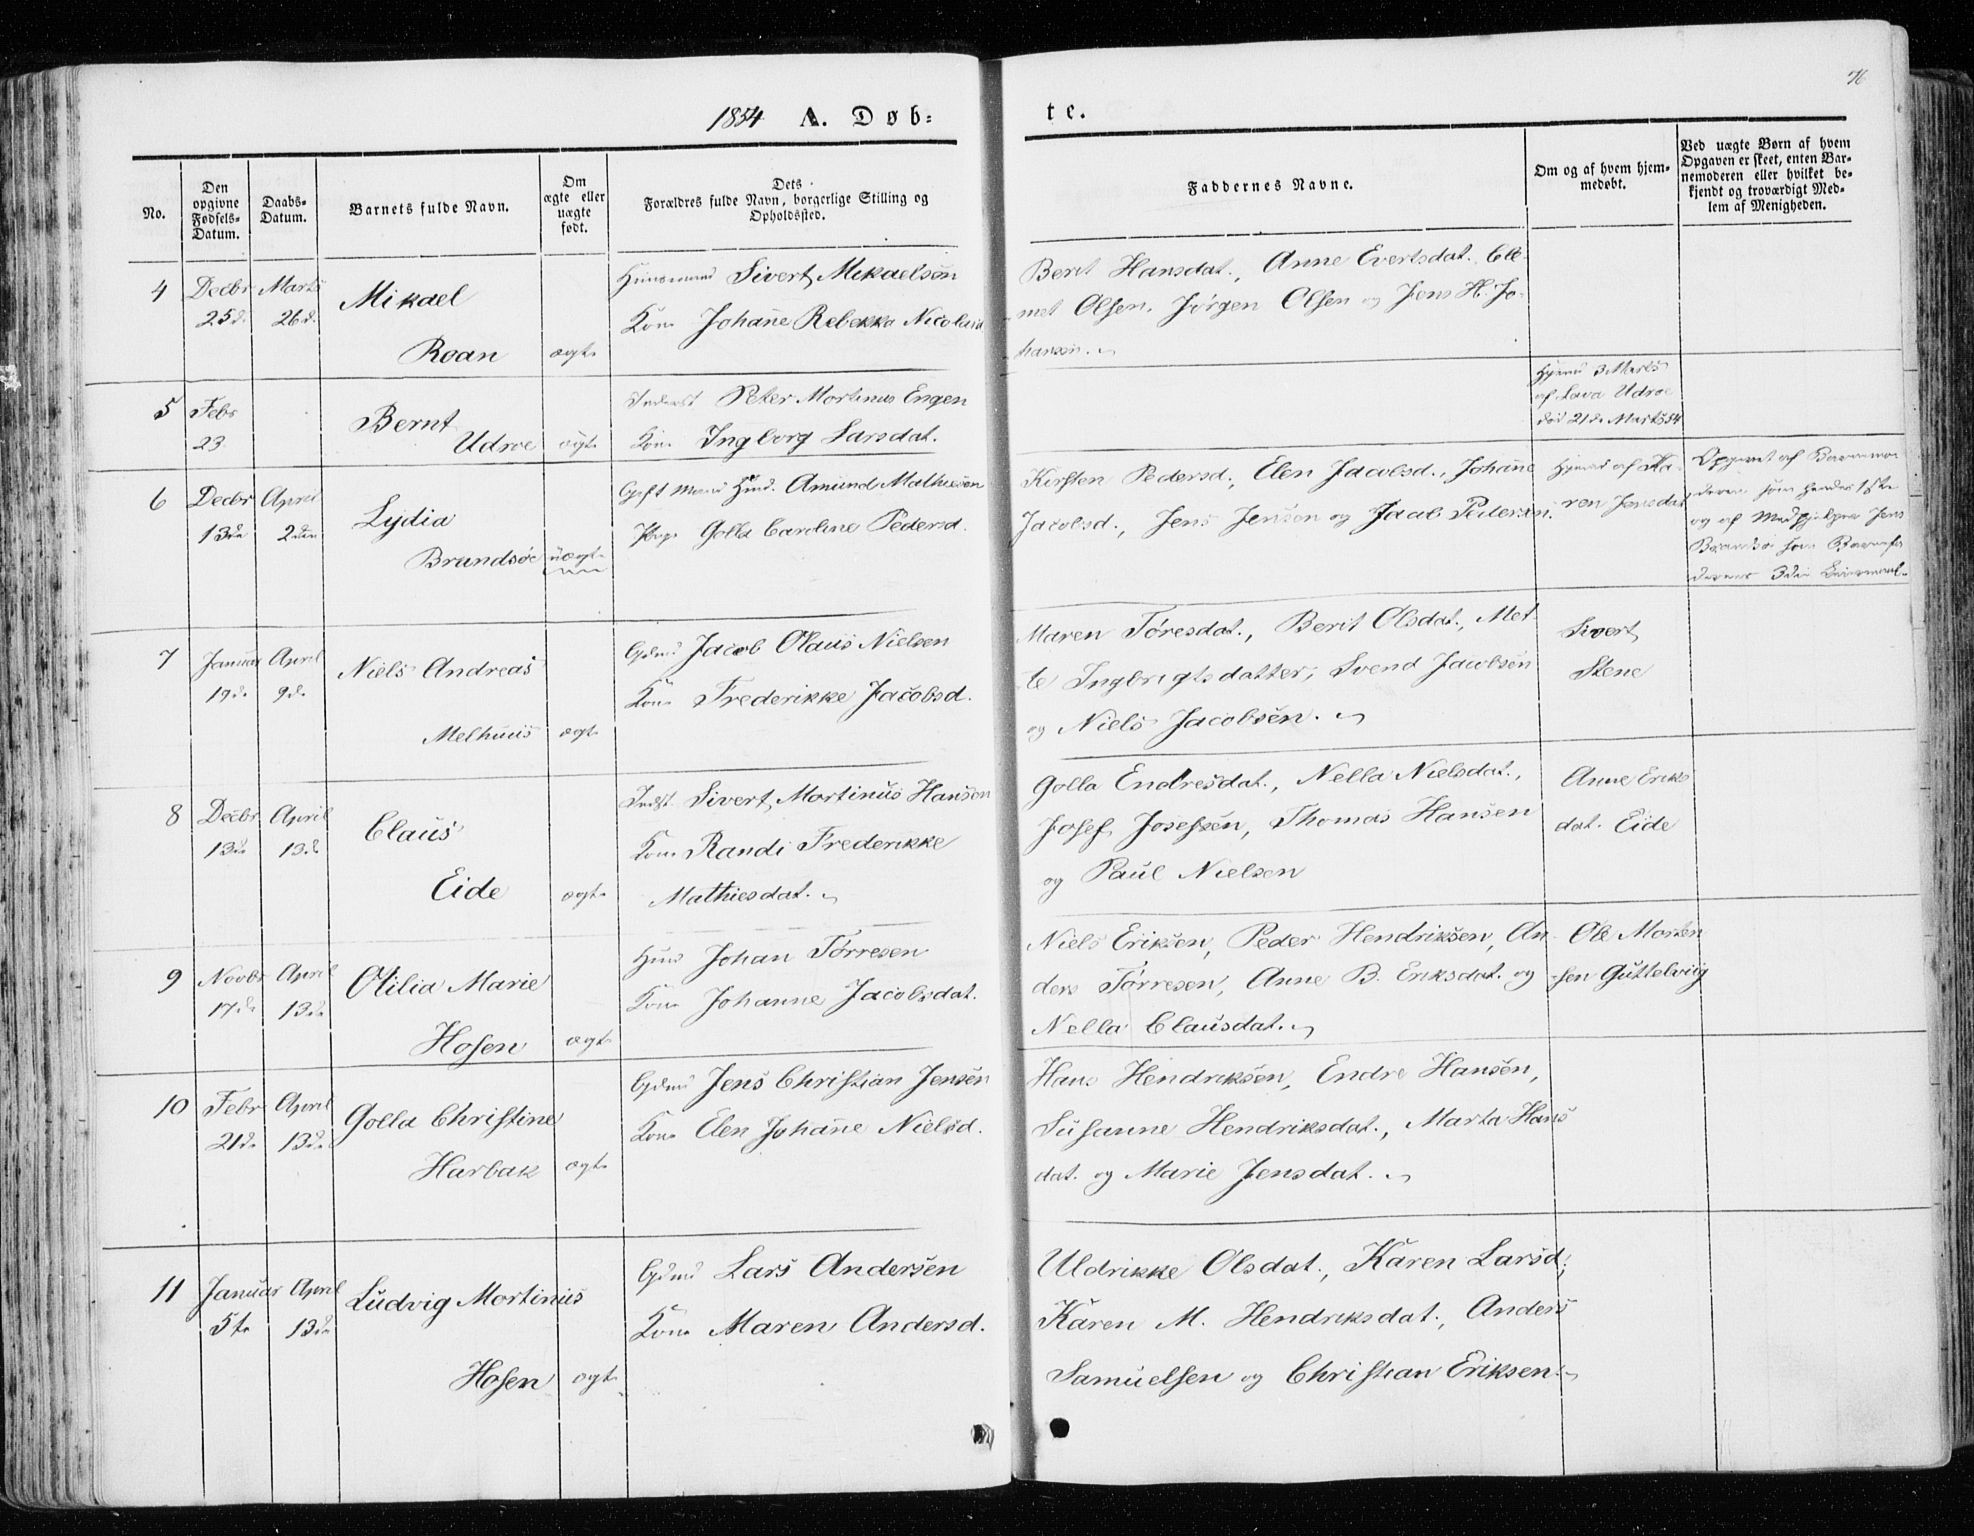 1854 A. Døb=
te.
76
No.
Den opgivne Fødsels-Datum.
Daabs-Datum.
Barnets fulde Navn.
Om ægte eller uægte født.
Dets Forældres fulde Navn, borgerlige Stilling og Opholdssted.
Faddernes Navne.
Om og af hvem hjemmedøbt.
Ved uægte Børn af hvem Opgaven er skeet, enten Barnemoderen eller hvilket bekjendt og troværdigt Medlem af Menigheden.
4 Decbr Marts Mikael Huusmand Sivert Mikaelsen
25d. 26d. Kone Johañe Rebekka Nicolaid
Roan ægte
Berit Hansdat., Anne Evertsdat. Cle-
met Olsen, Jörgen Olsen og Jens H. Jo-
hansen.
5 Febr Bernt Inderst Peter Mortinus Engen
23 Udroe ægte Kone Ingborg Larsdat.
Hjemd 3 Marts
af Lava Udroe
död 21d. Marts 54
6 Decbr April Lydia Gift Mand Hmd. Amund Mathiesen
13de 2den Pige Golla Caroline Pedersd.
Brandsøe uægte
Kirsten Pedersd., Elen Jacobsd., Johañe
Jacobsd., Jens Jensen og Jacob Pedersen.
Hjemd af Ka-
ren Jensdat
Opgivet af Barnemo-
deren som hendes 1ste
og af Medhjelper Jens
Brandsø som Barnefa-
derens 3die Leiermaal.
7 Januar April Niels Andreas Gdmd Jacob Olaus Nielsen
19d. 9d. Kone Frederikke Jacobsd.
Melhuus ægte
Maren Töresdat., Berit Olsdat., Met-
te Ingbrigtsdatter, Svend Jacobsen
og Niels Jacobsen.
Sivert
Stene
8 Decbr April Claus Indst. Sivert Martinus Hansen
13de 13d. Kone Randi Frederikke
Eide ægte Mathiesdat.
Golla Endresdat., Nella Nielsdat.,
Josef Josefsen, Thomas Hansen
og Paul Nielsen
Anne Eriks
dat. Eide
9 Novbr April Otilia Marie Hmd Johan Törresen
17d. 13de Kone Johanne Jacobsdat.
Hosen ægte
Niels Eriksen, Peder Hendriksen, An-
ders Törresen, Anne B. Eriksdat. og
Nella Clausdat.
Ole Morten
sen Guttelviig
10 Febr April Golla Christine Gdmd Jens Christian Jensen
21d. 13d. Kone Elen Johañe Nielsd.
Harbak ægte
Hans Hendriksen, Endre Hansen,
Susanne Hendriksdat., Marta Hans
dat. og Marie Jensdat.
11 Januar April Ludvig Mortinus Gdmd Lars Andersen
5te 13de Kone Maren Andersd.
Hosen ægte
Uldrikke Olsdat., Karen Larsd.,
Karen M. Hendriksdat., Anders
Samuelsen og Christian Eriksen.